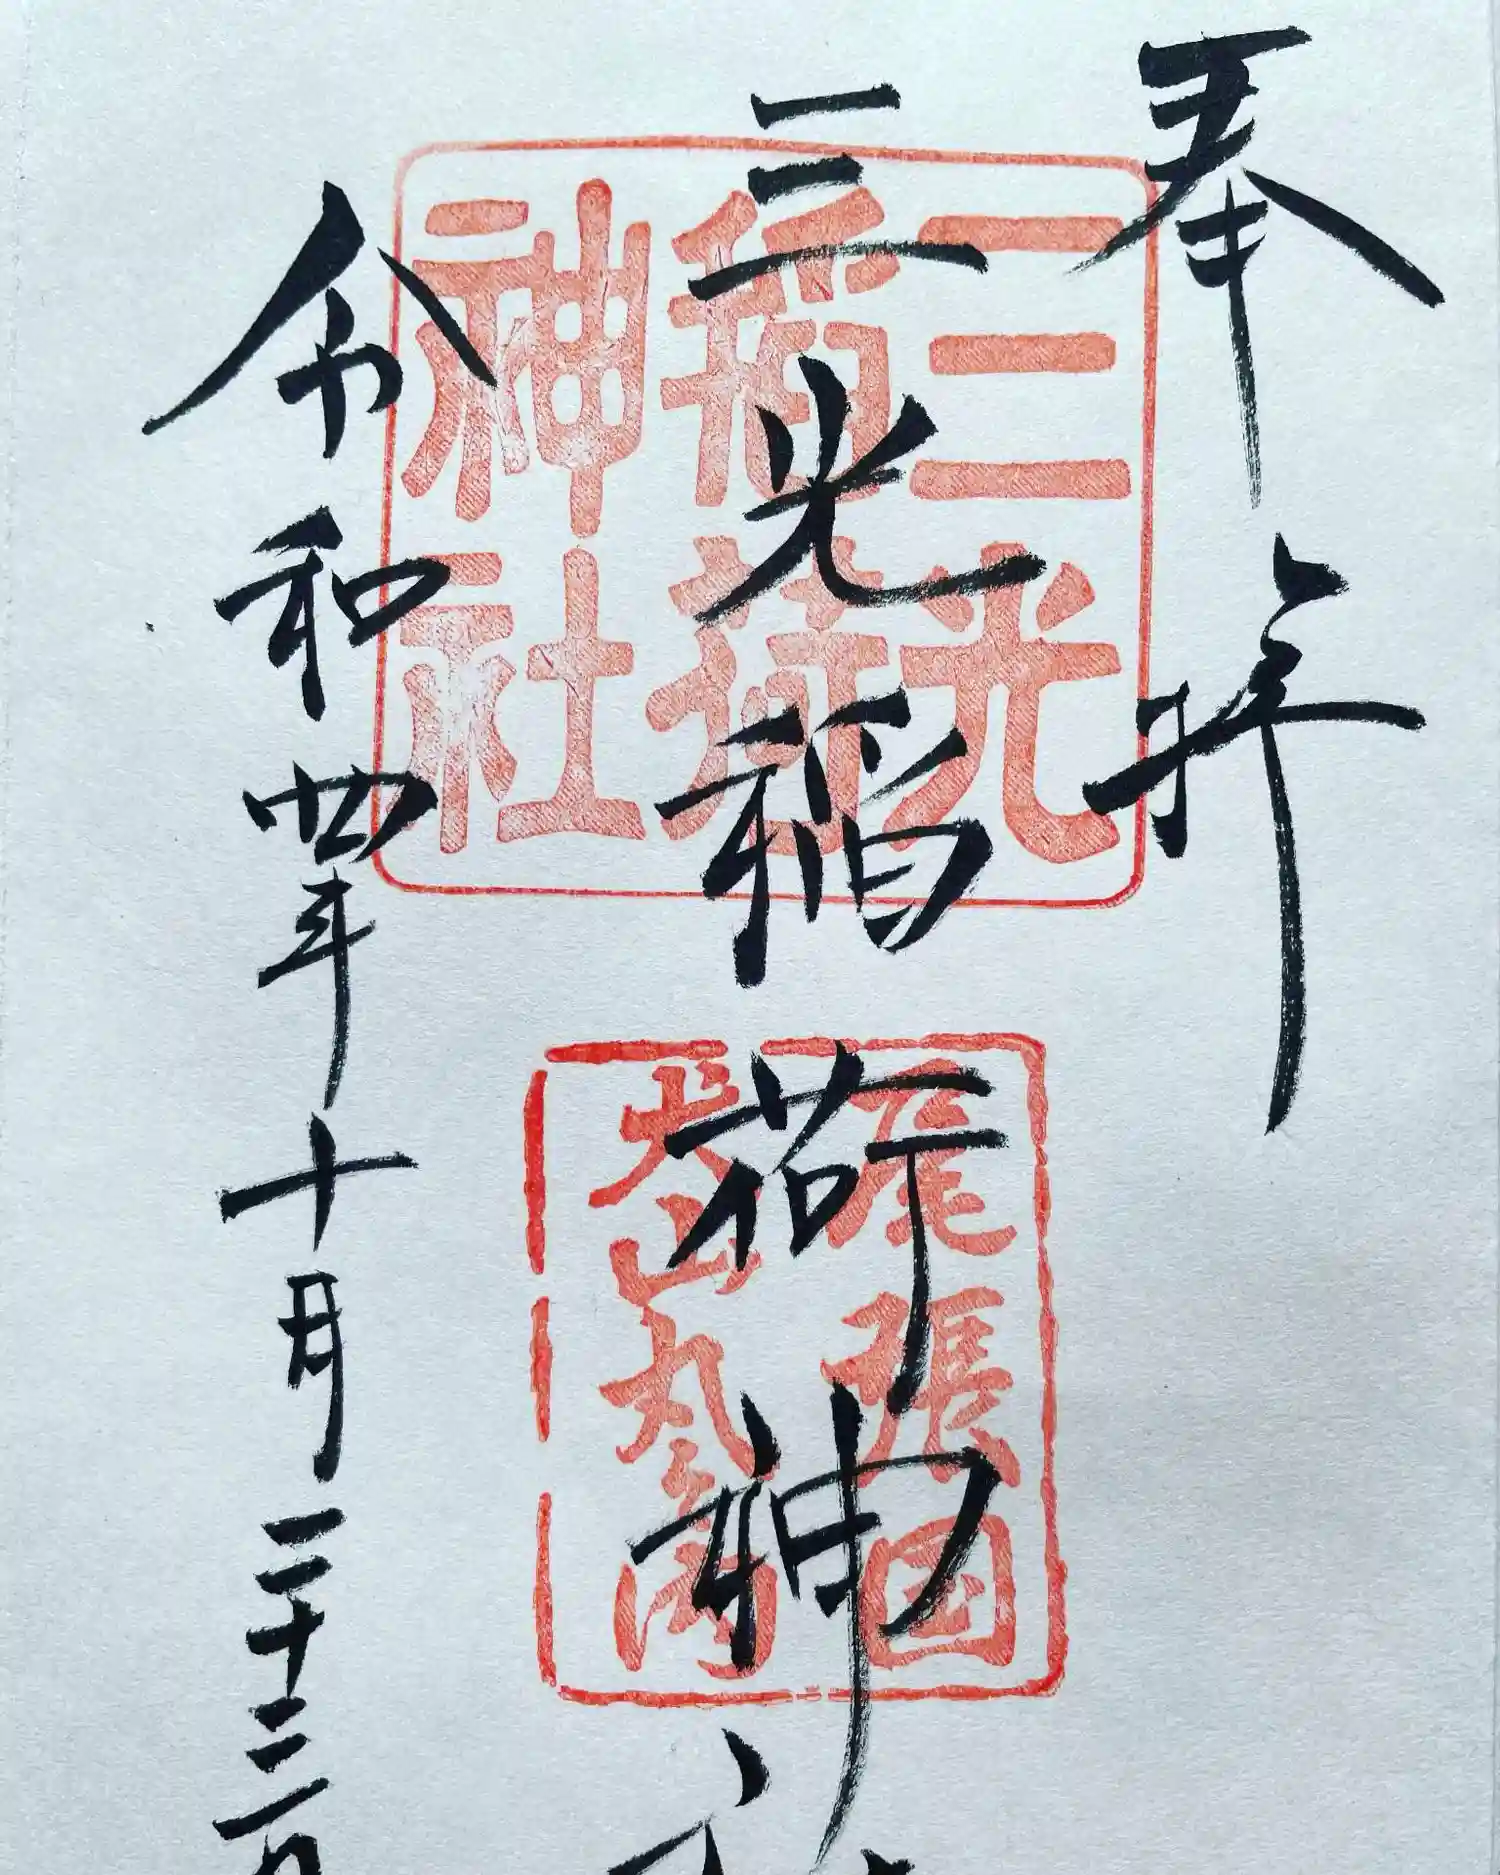 奉拝
三光稲荷神
令和四年十月二十三
三光
稲荷
神社
尾張国
犬山丸之内